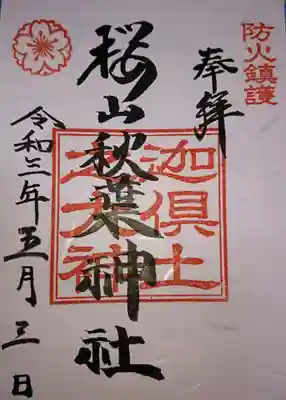 防火鎮護
奉拝
迦倶土
大神
桜山秋葉神社
令和三年五月三日